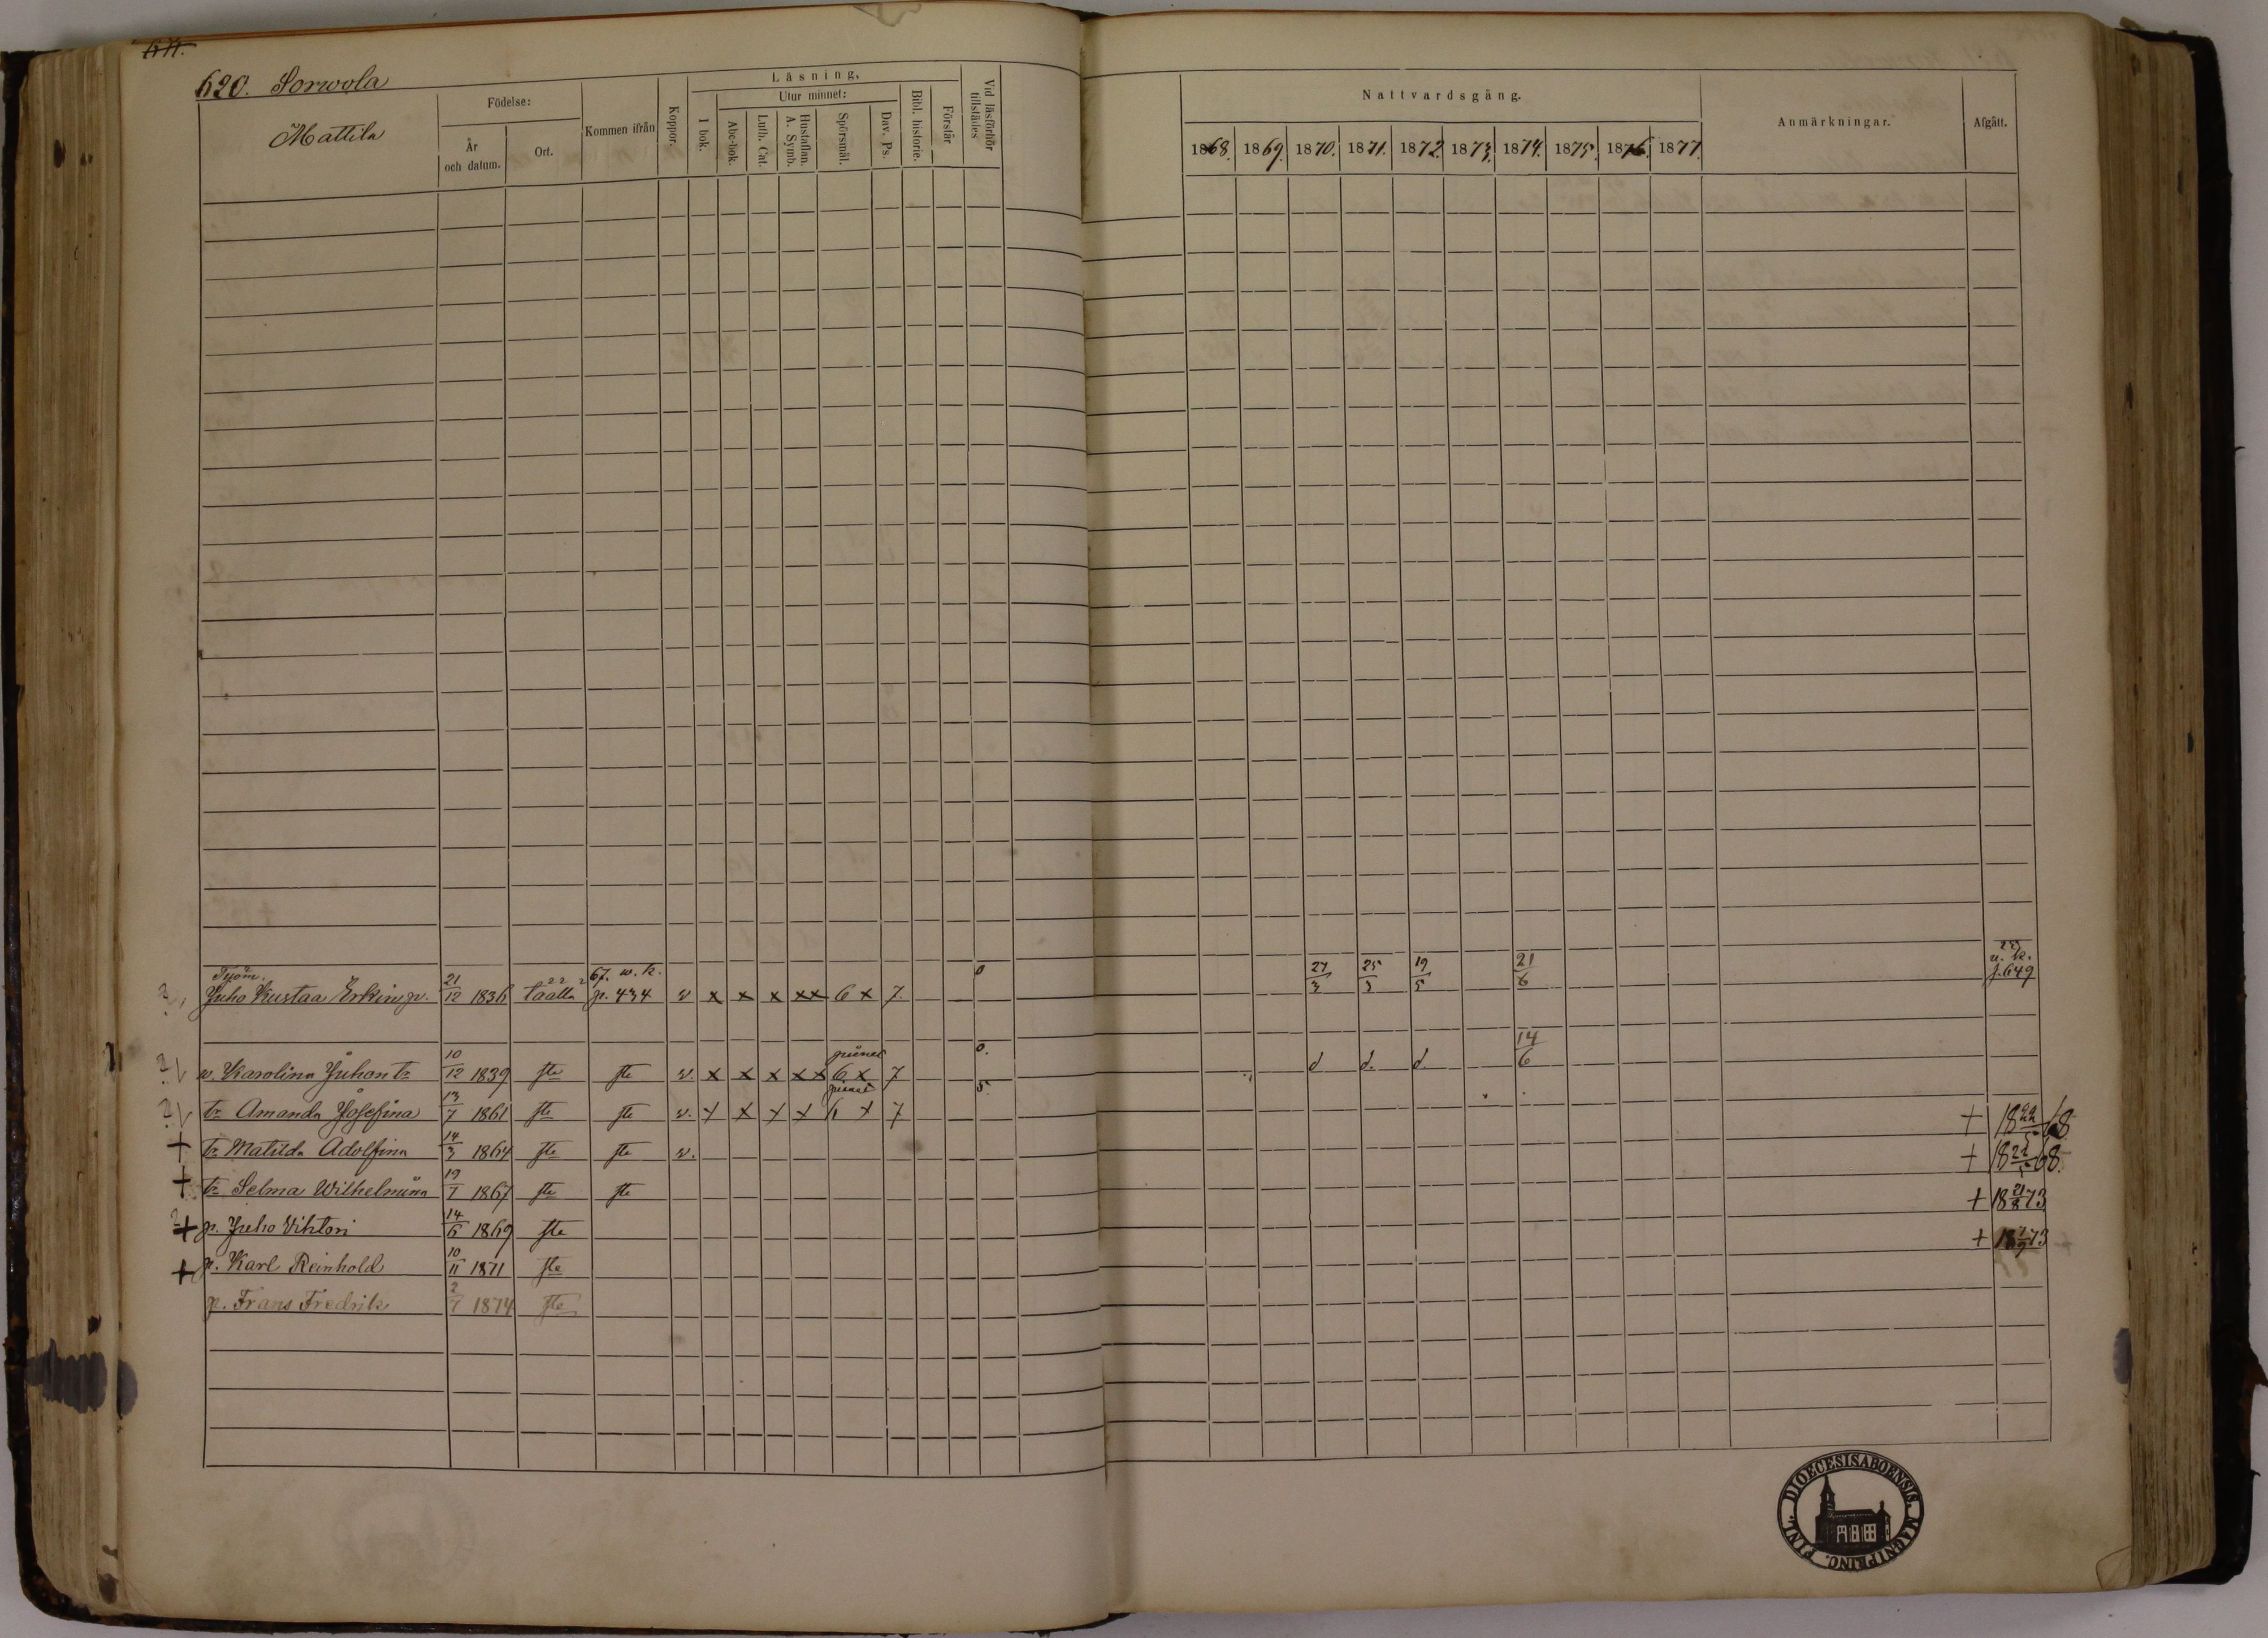 620. Sorwola
Mattila
Födelse:
År
och datum.
Ort.
Kommen ifrån
Koppor.
Läsning,
I bok.
Utur minnet:
Abc-bok.
Luth. Cat.
Hustaflan.
A. Symb.
Spörsmål.
Dav. Ps.
Bibl. historie.
Förstår
Vid läsförhör
tillstädes
Nattvardsgång.
1868. 1869. 1870. 1871. 1872. 1873. 1874. 1875. 1876. 1877.
Anmärkningar.
Afgått.
Työm. 67. w. k. 0 u. k.
Juho Kustaa Erkin p. 21/12 1836 taalla p. 434 w x x x xx 6 x 7. 27/3 25/3 19/5 21/6 p. 649
w. Karolina Juhon tr 10/12 1839 ste ste w. x x x xx 6 x 7 0. d d. d 14/6
tr Amanda Josefina 13/7 1861 ste ste w. x x x x 6 x 7 5.
+ tr Matilda Adolfina 14/3 1864 ste ste w. + 18 22/5 68
+ tr Selma Wilhelmina 19/7 1867 ste ste + 18 22/5 68.
+ p. Juho Vihtori 14/6 1869 ste + 18 21/8 73
+ p. Karl Reinhold 10/11 1871 ste + 18 7/9 73
p. Frans Fredrik 2/7 1874 ste
FINL. DIOECESIS ABOENSIS. MAGNI PRINC.